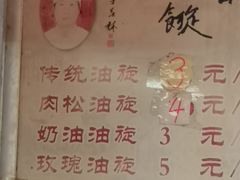 传统油旋 3 元/
肉松油旋 4 元/
奶油油旋 3 元/
玫瑰油旋 5 元/